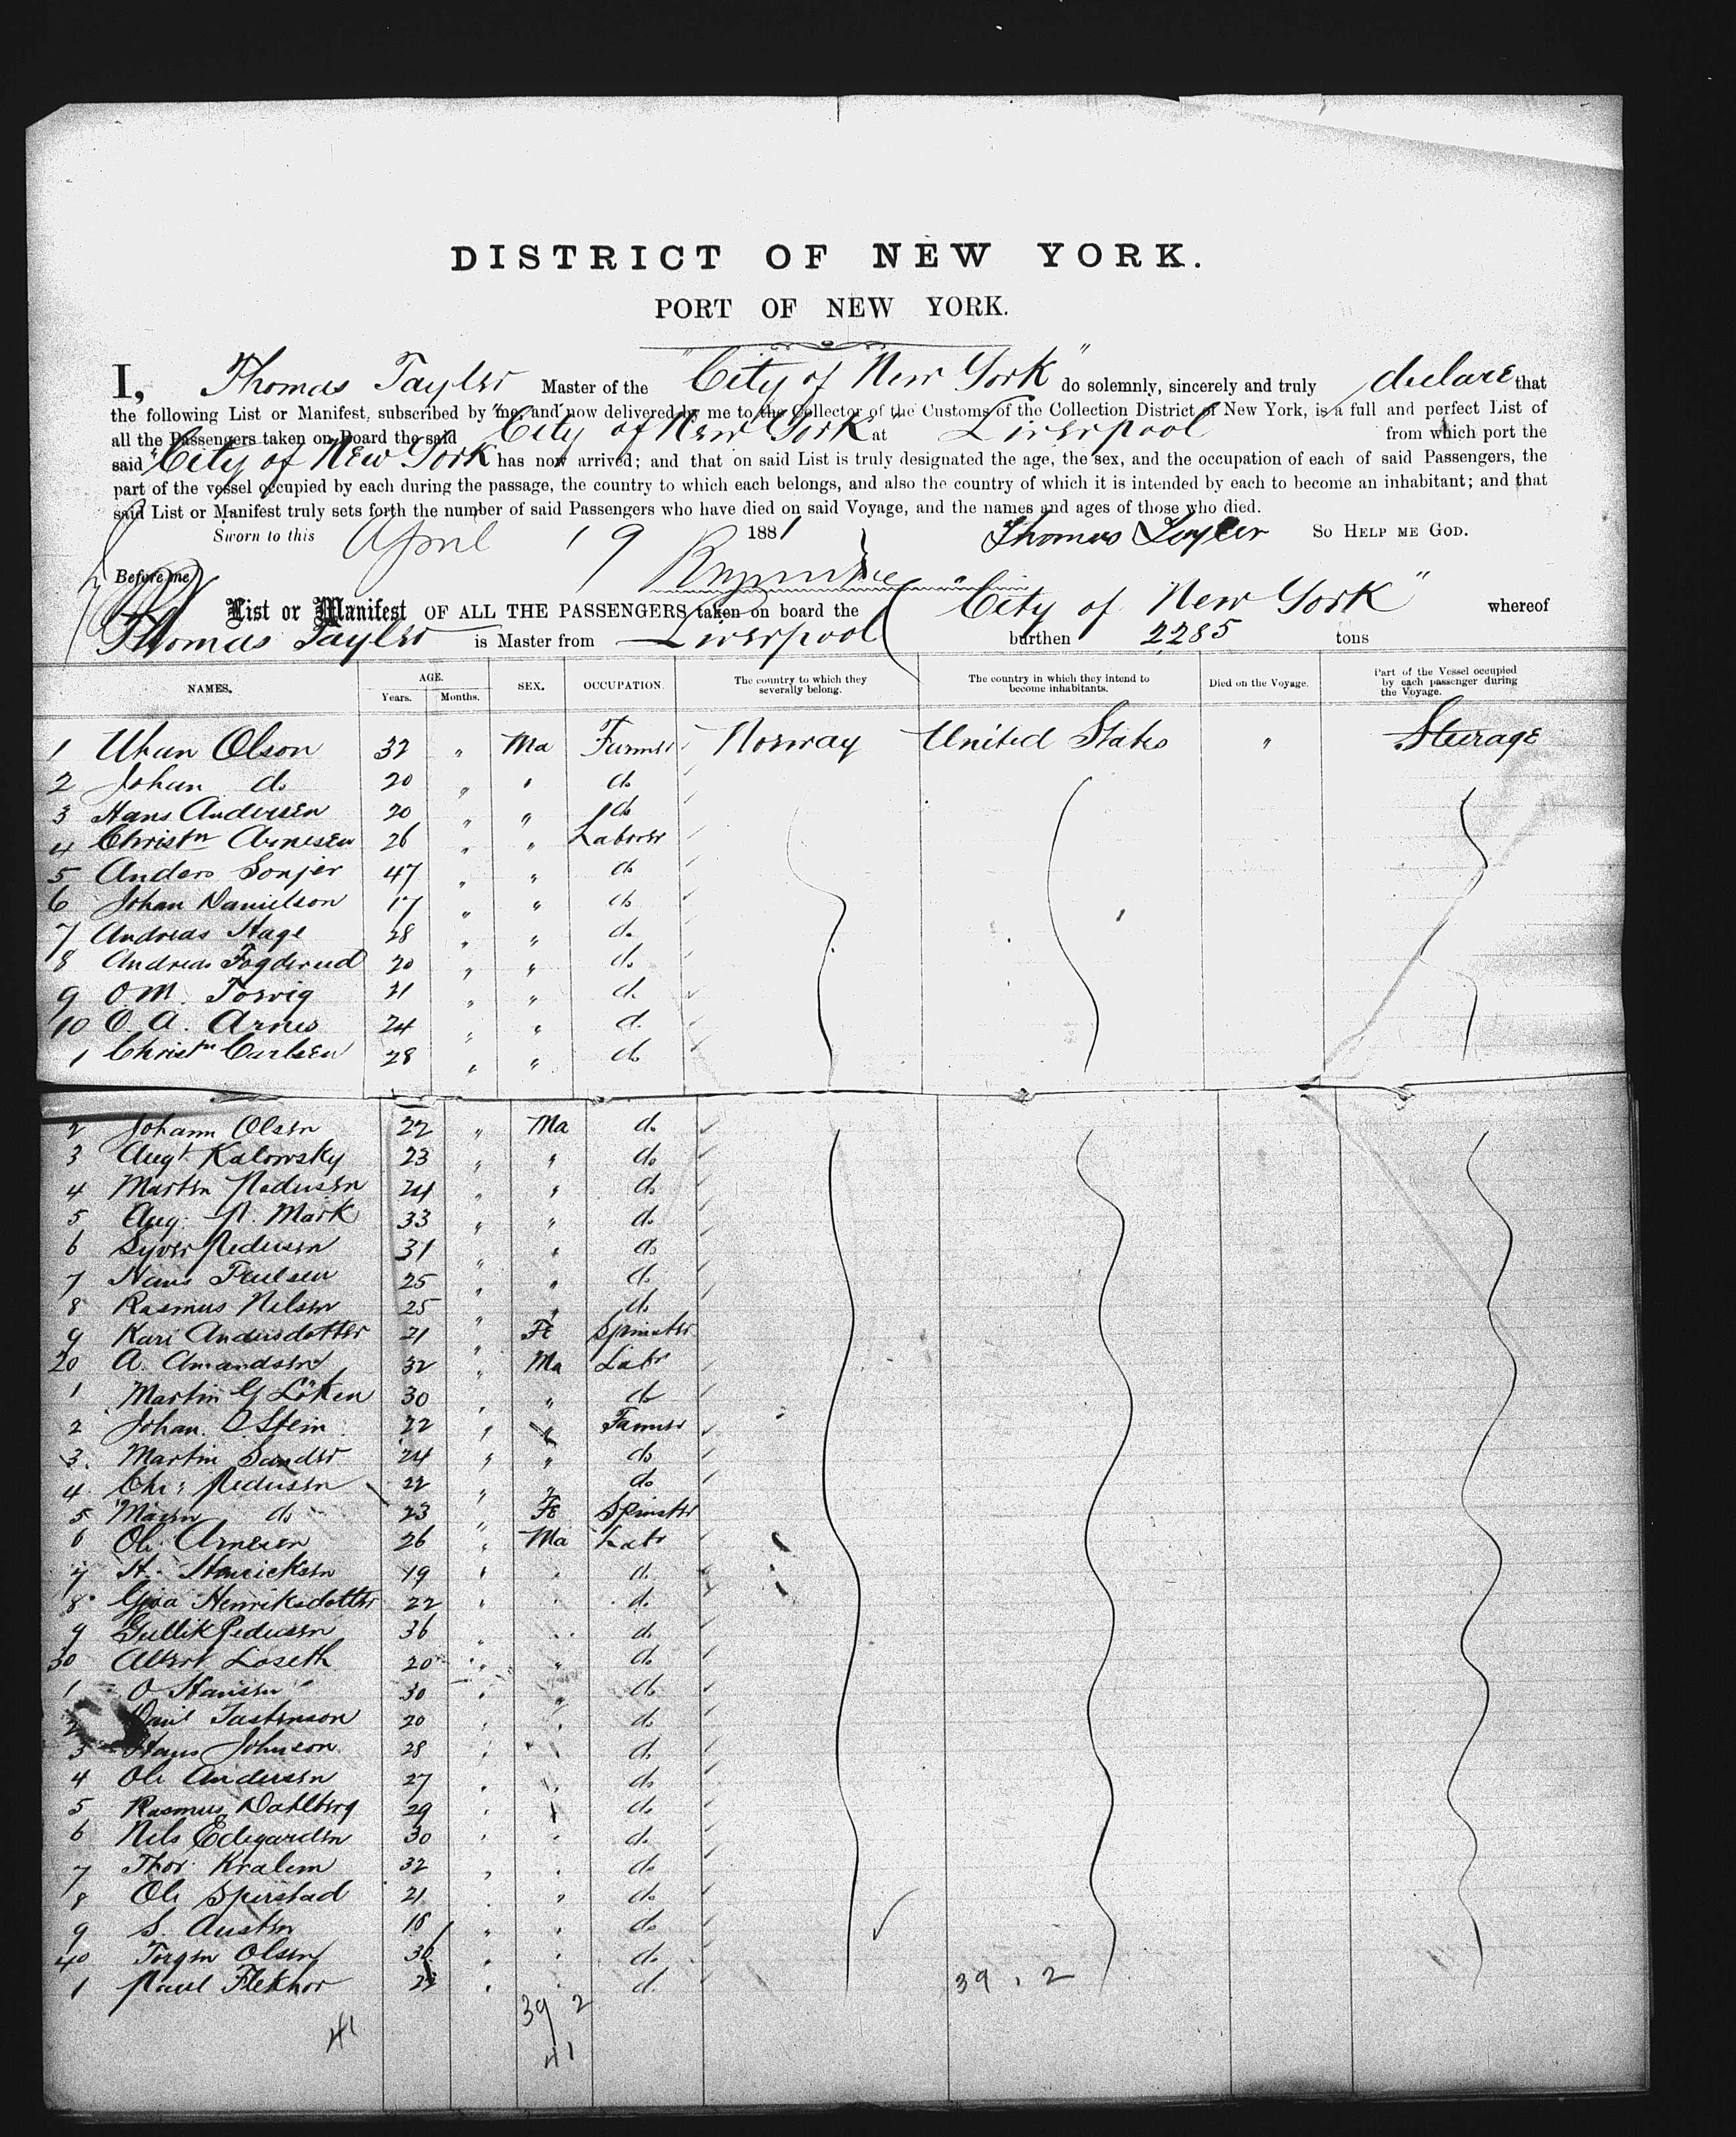 DISTRICT OF NEW YORK.
PORT OF NEW YORK.
I, Thomas Tayler Master of the "City of New York" do solemnly, sincerely and truly declare that
the following List or Manifest, subscribed by me, and now delivered by me to the Collector of the Customs of the Collection District of New York, is a full and perfect List of
all the Passengers taken on Board the said "City of New York at Liverpool from which port the
said "City of New York has now arrived; and that on said List is truly designated the age, the sex, and the occupation of each of said Passengers, the
part of the vessel occupied by each during the passage, the country to which each belongs, and also the country of which it is intended by each to become an inhabitant; and that
said List or Manifest truly sets forth the number of said Passengers who have died on said Voyage, and the names and ages of those who died.
Sworn to this April 19 1881 Thomas Tayler SO HELP ME GOD.
Before me
List or Manifest OF ALL THE PASSENGERS taken on board the "City of New York" whereof
Thomas Tayler is Master from Liverpool burthen 2285 tons
NAMES. AGE. Years. Months. SEX. OCCUPATION. The country to which they severally belong. The country in which they intend to become inhabitants. Died on the Voyage. Part of the Vessel occupied by each passenger during the Voyage.
1 Olson 32 " Ma Farmer Norway United States " Steerage
2 Johan do 20 " " do
3 Hans Andersen 20 " " do
4 Christn Arnesen 26 " " Laborer
5 Anders Sonjer 47 " " do
6 Johan Danielson 17 " " do
7 Andreas Hage 28 " " do
8 Andreas Fogderud 20 " " do
9 O.M. Torvig 21 " " do
10 O. A. Arnes 24 " " do
1 Christn Carlsen 28 " " do
2 Johann Olsen 22 " Ma do
3 Augt Kalowsky 23 " " do
4 Marten Pedersen 24 " " do
5 Aug. P. Mark 33 " " do
6 Syver Pedersen 31 " " do
7 Hans Paulsen 25 " " do
8 Rasmus Nilsen 25 " " do
9 Kari Andersdotter 21 " Fe Spinster
20 A. Amandsen 32 " Ma Labr
1 Martin G Löken 30 " " do
2 Johan O. Stein 22 " " Farmer
3 Martin Sander 24 " " do
4 Chr: Pedersen 22 " " do
5 Maren do 23 " Fe Spinster
6 Ole Arnesen 26 " Ma Labr
7 H. Henricksen 19 " " do
8 Henriksdotter 22 " " do
9 Gullik Pedersen 36 " " do
30 Albert Loseth 20 " " do
1 O Hansen 30 " " do
2 Tastenson 20 " " do
3 Hans Johnson 28 " " do
4 Ole Andersen 27 " " do
5 Rasmus Dahlberg 29 " " do
6 Nils Edegarden 30 " " do
7 Thor Kralem 32 " " do
8 Ole Sperstad 21 " " do
9 S. Austen " " do
40 Torgen Olsen " " do
1 Paul Flekhor " " do
39 . 2
39 2
41
41